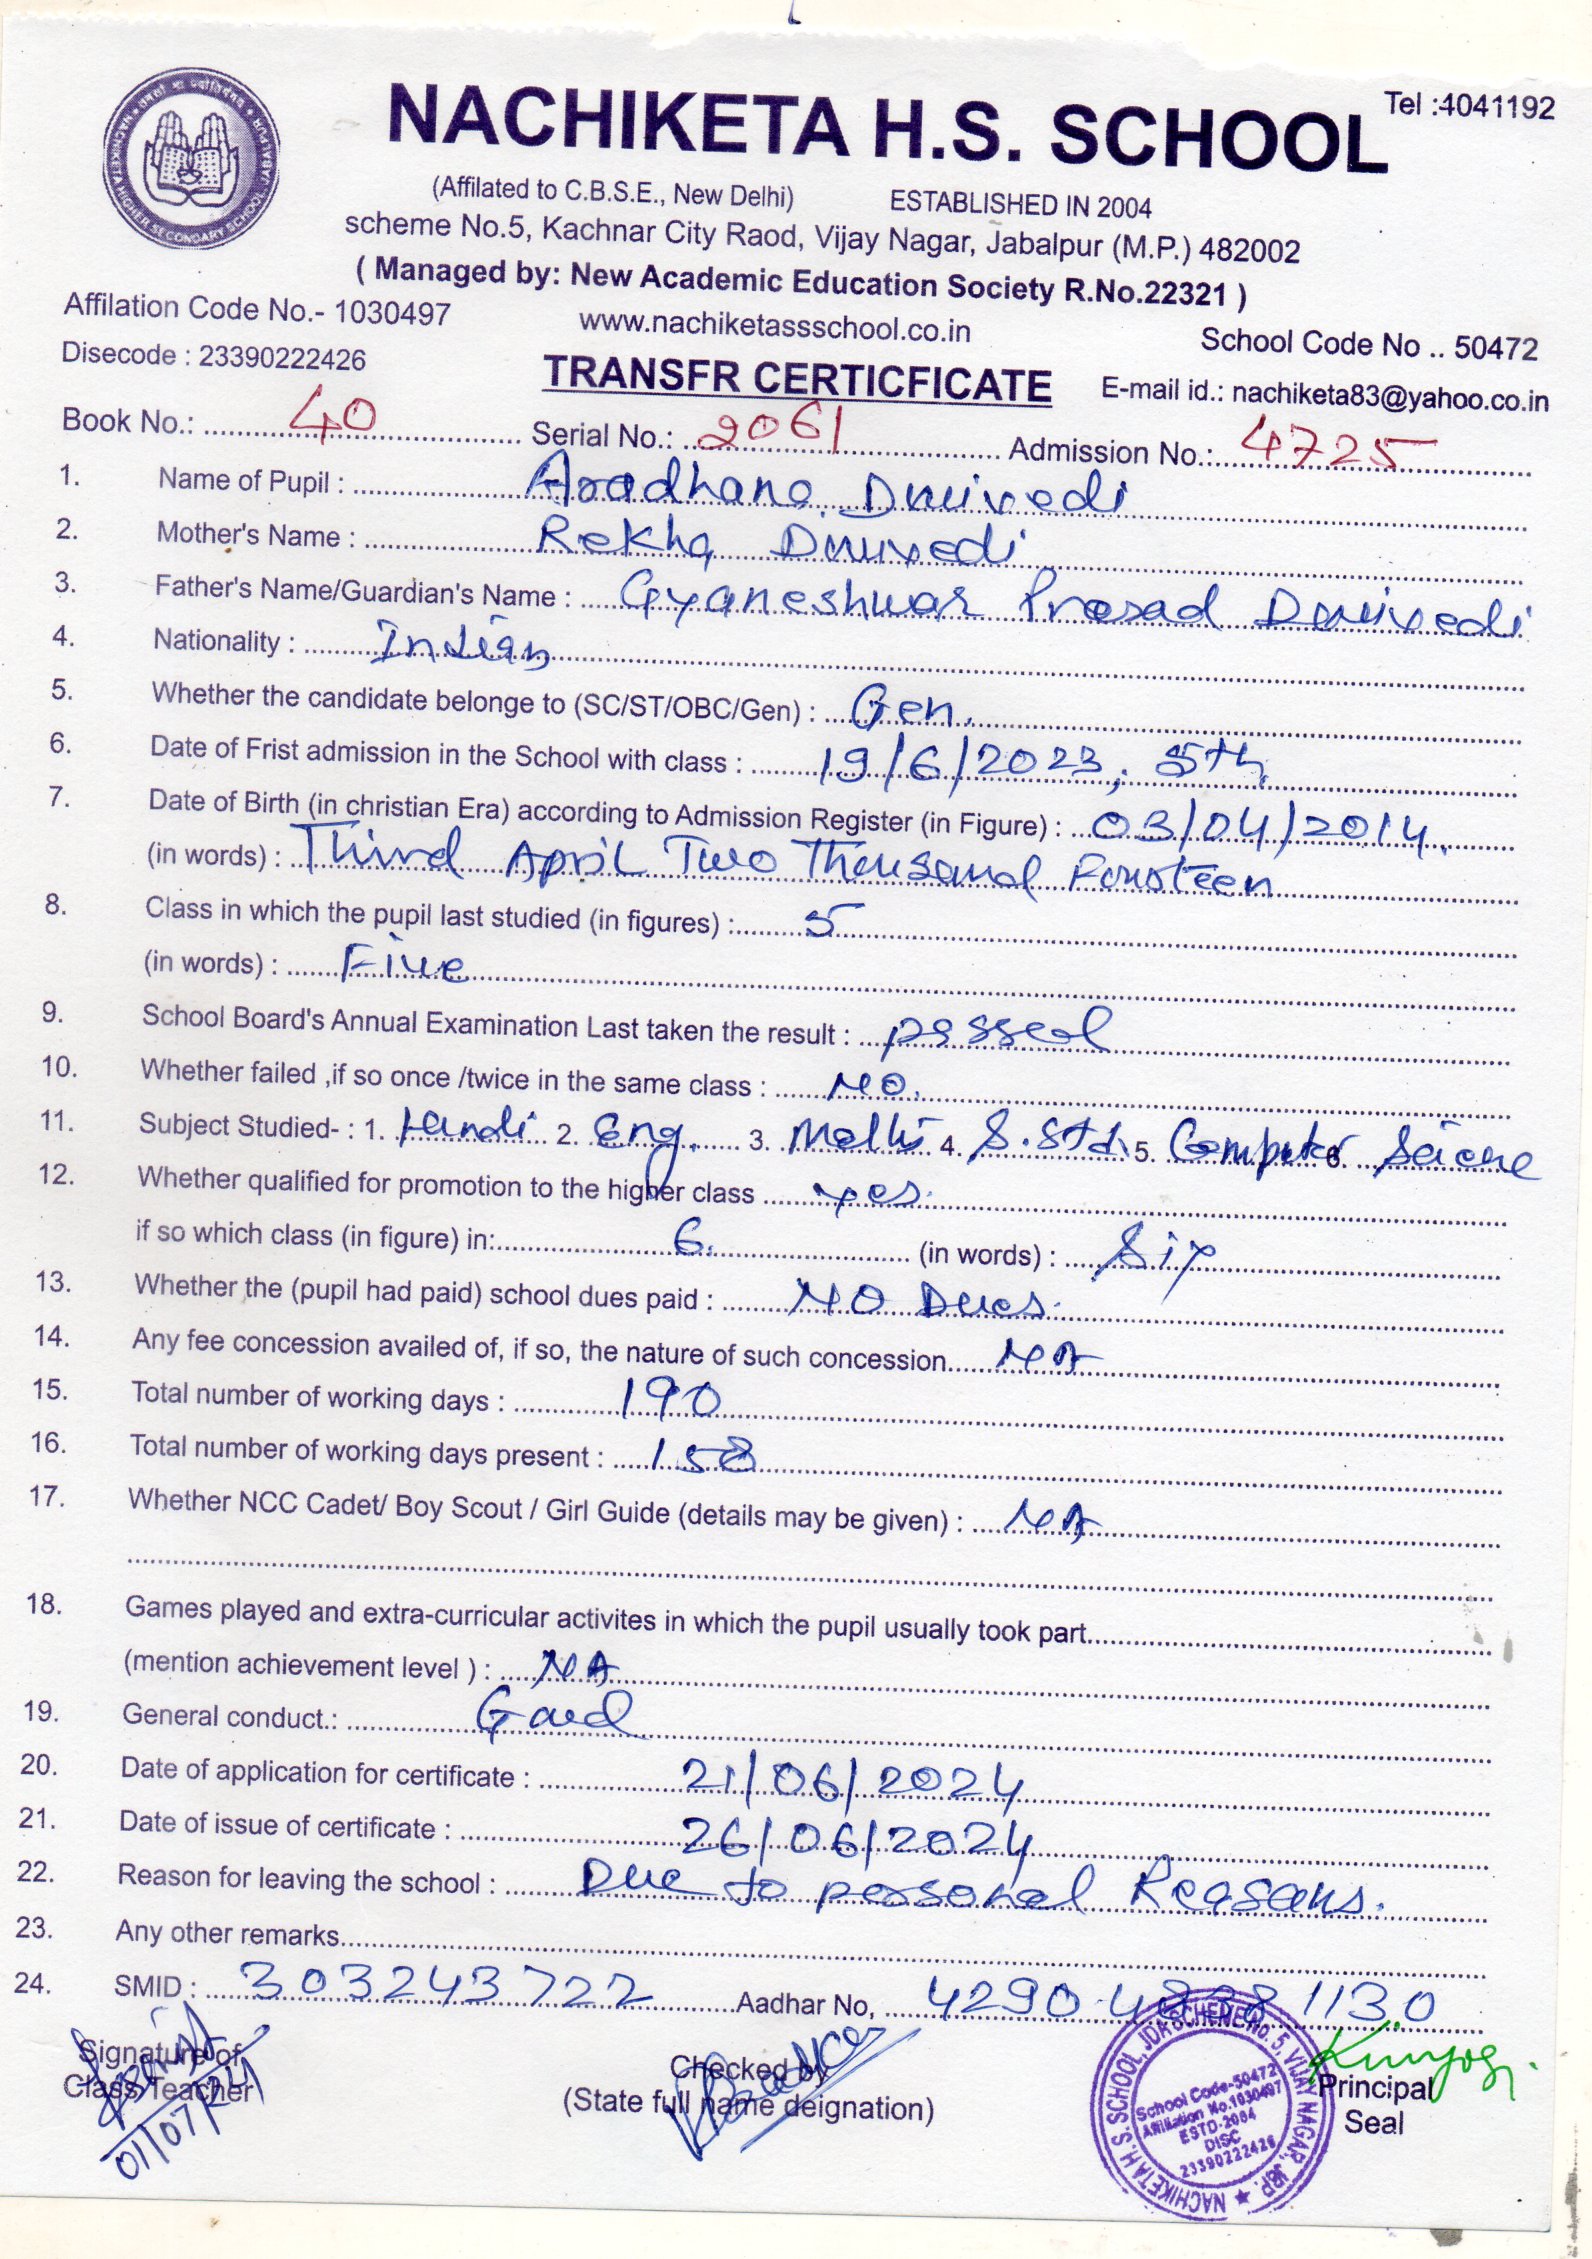 NACHIKETA H.S. SCHOOL
Tel :4041192
(Affilated to C.B.S.E., New Delhi) ESTABLISHED IN 2004
scheme No.5, Kachnar City Raod, Vijay Nagar, Jabalpur (M.P.) 482002
( Managed by: New Academic Education Society R.No.22321 )
Affilation Code No.- 1030497 www.nachiketassschool.co.in School Code No .. 50472
Disecode : 23390222426 TRANSFR CERTICFICATE E-mail id.: nachiketa83@yahoo.co.in
Book No.: 40 Serial No.: 2061 Admission No.: 4725
1. Name of Pupil : Aradhana Dwivedi
2. Mother's Name : Rekha Dwivedi
3. Father's Name/Guardian's Name : Gyaneshwar Prasad Dwivedi
4. Nationality : Indian
5. Whether the candidate belonge to (SC/ST/OBC/Gen) : Gen.
6. Date of Frist admission in the School with class : 19/6/2023, 5th
7. Date of Birth (in christian Era) according to Admission Register (in Figure) : 03/04/2014.
(in words) : Third April Two Thousand Fourteen
8. Class in which the pupil last studied (in figures) : 5
(in words) : Five
9. School Board's Annual Examination Last taken the result : passed
10. Whether failed ,if so once /twice in the same class : NO.
11. Subject Studied- : 1. Hindi 2. Eng. 3. Maths 4. S.Std. 5. Computer 6. Science
12. Whether qualified for promotion to the higher class yes.
if so which class (in figure) in: 6. (in words) : Six
13. Whether the (pupil had paid) school dues paid : NO Dues.
14. Any fee concession availed of, if so, the nature of such concession NA
15. Total number of working days : 190
16. Total number of working days present : 158
17. Whether NCC Cadet/ Boy Scout / Girl Guide (details may be given) : NA
18. Games played and extra-curricular activites in which the pupil usually took part
(mention achievement level ) : NA
19. General conduct.: Good
20. Date of application for certificate : 21/06/2024
21. Date of issue of certificate : 26/06/2024
22. Reason for leaving the school : Due to personal Reasons.
23. Any other remarks
24. SMID : 303243722 Aadhar No, 4290 4838 1130
Signature of Checked by Principal
Class Teacher (State full name deignation) Seal
01/07/24
NACHIKETA H. S. SCHOOL, JDA SCHEME No. 5, VIJAY NAGAR, JBP.
School Code-50472
Affiliation No.1030497
ESTD-2004
DISC
23390222426